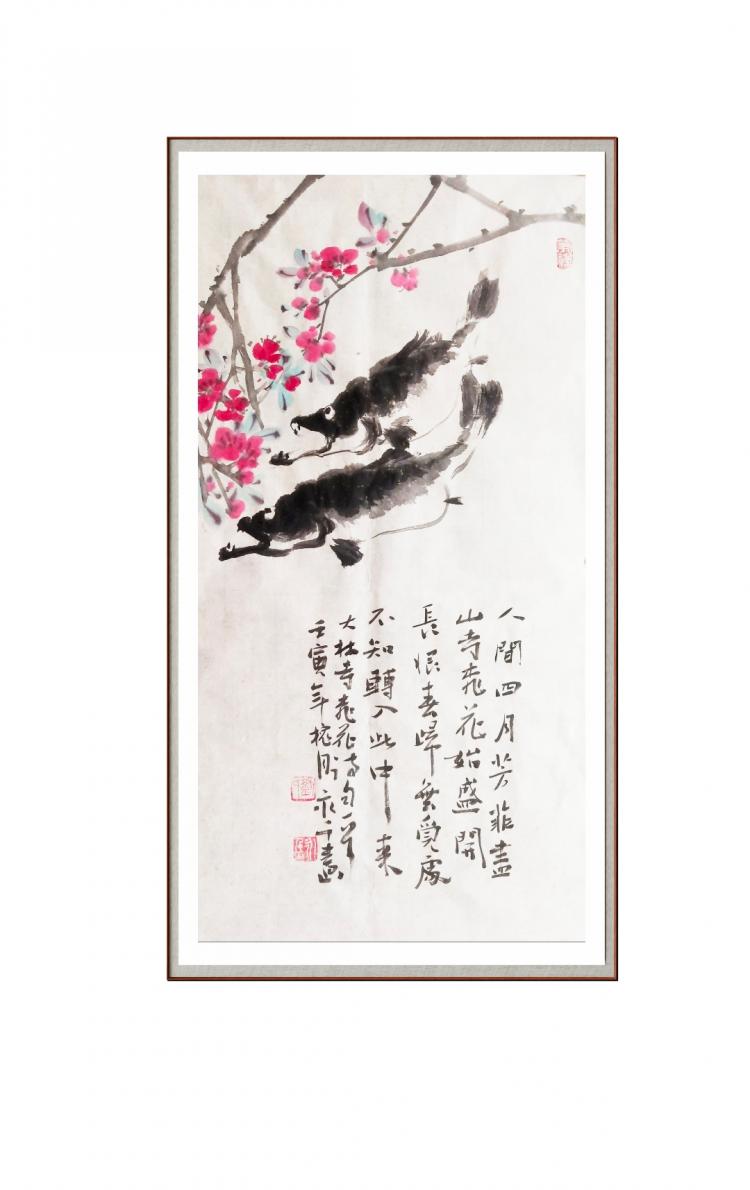 人間四月芳菲盡
山寺桃花始盛開
長恨春歸無覓處
不知轉入此中來
大林寺桃花詩句
壬寅年桃月